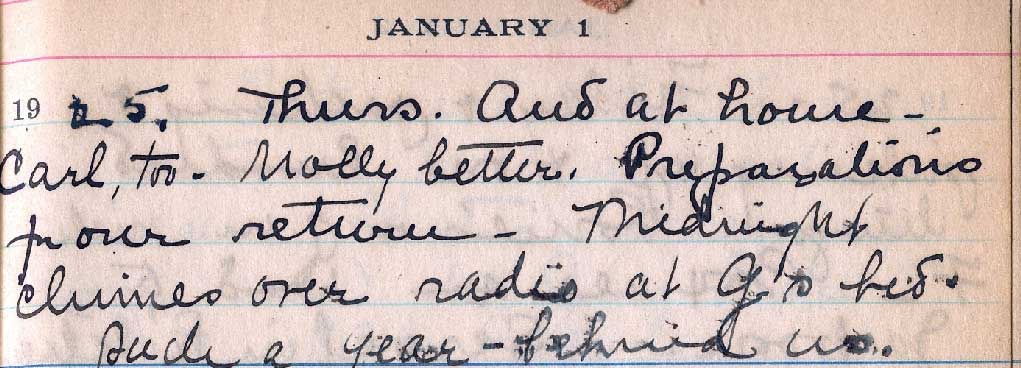 JANUARY 1
1925. Thurs. And at home -
Carl, too. Molly better. Preparations
for our return - Midnight
chimes over radio at G's bed.
Such a year - behind us.